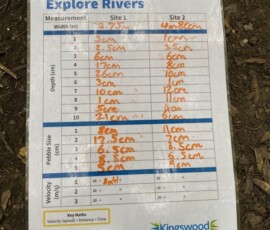 Explore Rivers
Measurement Site 1 Site 2
Width (m)
Depth (cm)
1 5cm 1cm
2 8.5cm 3.5cm
3 6cm 6cm
4 17cm 8cm
5 26cm 10cm
6 3cm 1cm
7 10cm 12cm
8 1cm 11cm
9 5cm 5cm
10 21cm 6cm
Pebble Size (cm)
1 8cm 11cm
2 12.5cm 7cm
3 6.5cm 8.5cm
4 8.5cm 6.5cm
5 5cm
Velocity (m/s)
1
2
3
Key Maths
Velocity (speed) = Distance ÷ Time
Kingswood